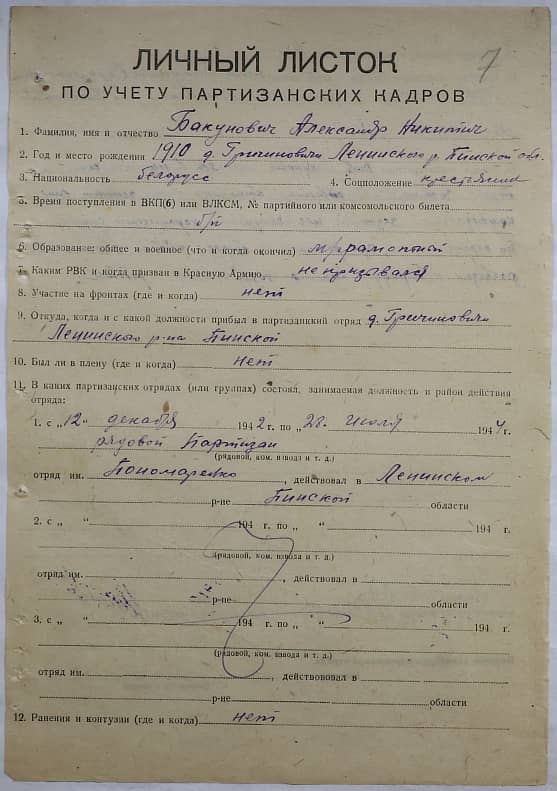 7
ЛИЧНЫЙ ЛИСТОК
ПО УЧЕТУ ПАРТИЗАНСКИХ КАДРОВ
1. Фамилия, имя и отчество Бакунович Александр Никитич
2. Год и место рождения 1910 д. Гричиновичи Ленинского р. Пинской обл.
3. Национальность белорусс 4. Соцположение крестьянин
5. Время поступления в ВКП(б) или ВЛКСМ, № партийного или комсомольского билета
б/п
6. Образование: общее и военное (что и когда окончил)
7. Каким РВК и когда призван в Красную Армию, не призывался
8. Участие на фронтах (где и когда) нет
9. Откуда, когда и с какой должности прибыл в партизанский отряд д. Гричиновичи
Ленинского р-на Пинской
10. Был ли в плену (где и когда) нет
11. В каких партизанских отрядах (или группах) состоял, занимаемая должность и район действия
отряда:
1. с „12" декабря 1942 г. по „28. июля 1944 г.
рядовой Партизан
(рядовой, ком. взвода и т. д.)
отряд им. Пономаренко, действовал в Ленинском
р-не Пинской области
2. с „ " 194 г. по „ " 194 г.
(рядовой, ком. взвода и т. д.)
отряд им. , действовал в
р-не области
3. с „ " 194 г. по „ " 194 г.
(рядовой, ком. взвода и т. д.)
отряд им. , действовал в
р-не области
12. Ранения и контузии (где и когда) нет